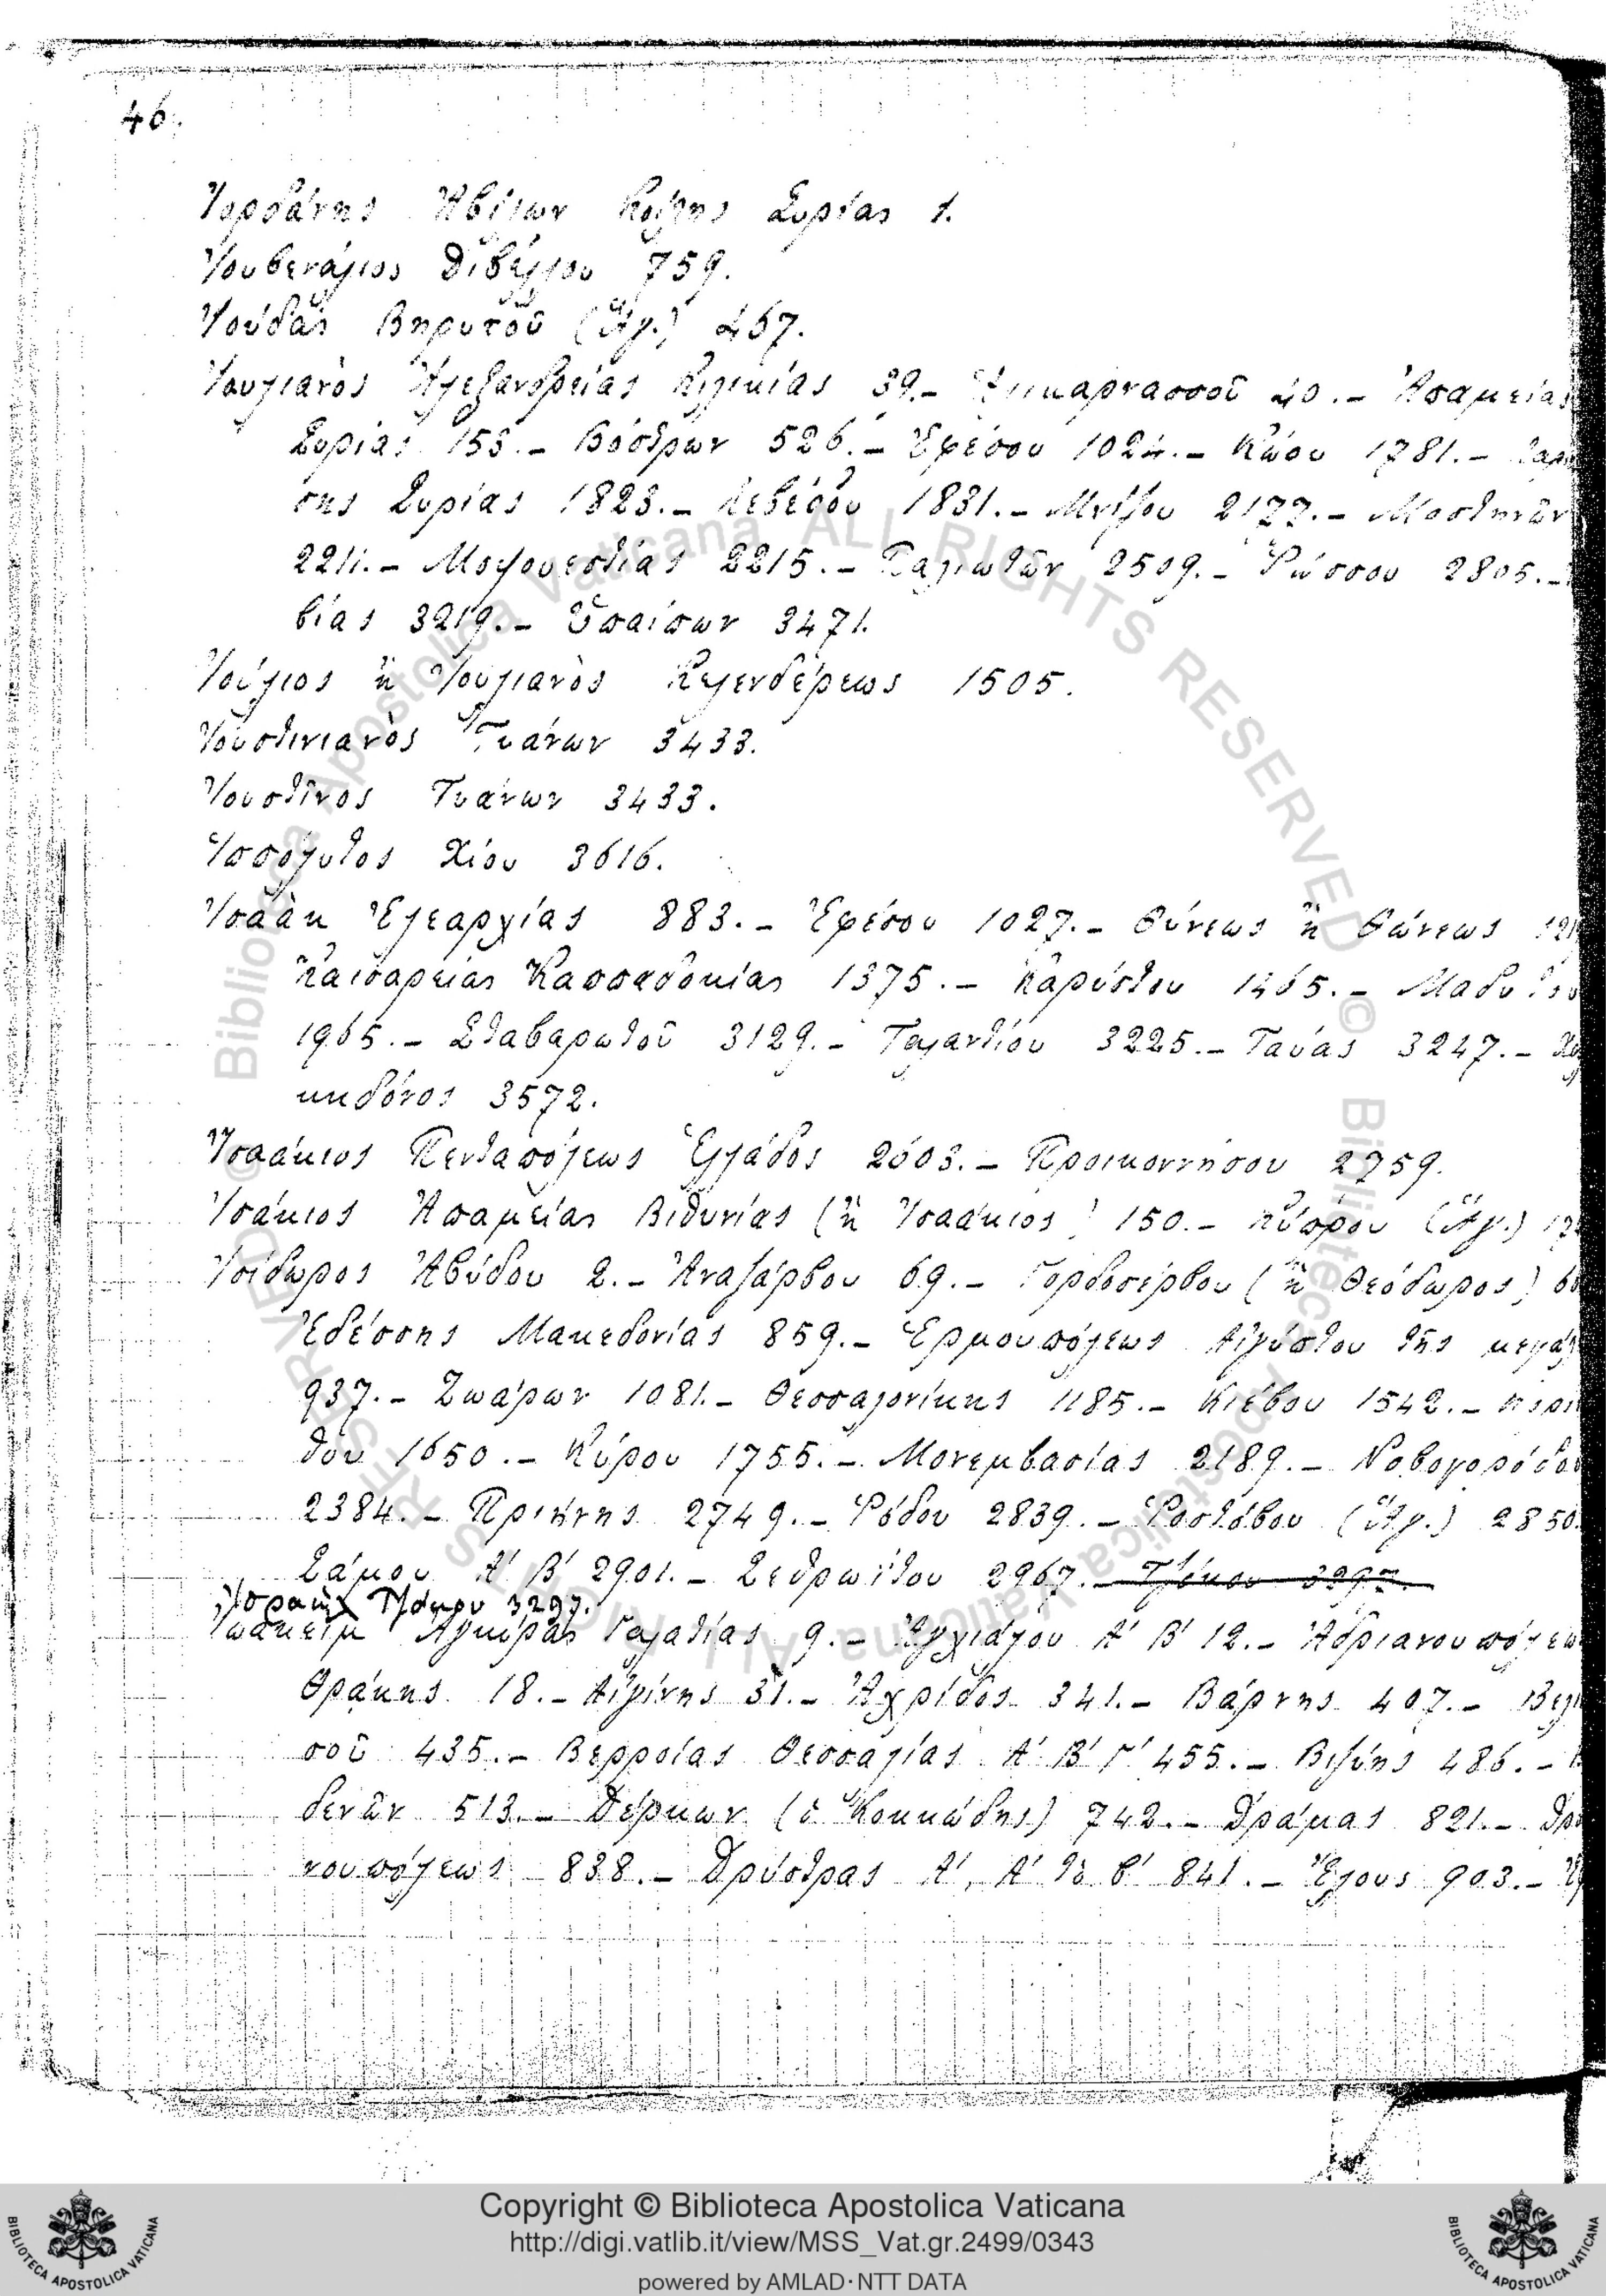 46.
Ἰορδάνης Ἀβίλων Κοίλης Συρίας 1.
Ἰουβενάλιος Διβέλλου 759.
Ἰούδας Βηρυτοῦ (Ἅγ.) 467.
Ἰουλιανὸς Ἀλεξανδρείας Κιλικίας 39.- Ἁλικαρνασσοῦ 40.- Ἀπαμείας
Συρίας 153.- Βόστρων 526.- Ἐφέσου 1024.- Κώου 1781.-
σης Συρίας 1823.- Λεβέδου 1831.- Μνίζου 2177.- Μοστηνῶν
2211.- Μοψουεστίας 2215.- Παλιωτῶν 2509.- Ῥώσσου 2805.-
βίας 3219.- Ὑπαίπων 3471.
Ἰούλιος ἢ Ἰουλιανὸς Κελενδέρεως 1505.
Ἰουστινιανὸς Τυάνων 3433.
Ἰουστῖνος Τυάνων 3433.
Ἱππόλυτος Χίου 3616.
Ἰσαὰκ Ἐλεαρχίας 883.- Ἐφέσου 1027.- Θύνεως ἢ Θώνεως
Καισαρείας Καππαδοκίας 1375.- Καρύστου 1465.- Μαδύτου
1965.- Σταβαρωτοῦ 3129.- Ταλαντίου 3225.- Ταύας 3247.- Χαλ
κηδόνος 3572.
Ἰσαάκιος Πενταπόλεως Ἑλλάδος 2603.- Προικοννήσου 2759.
Ἰσάκιος Ἀπαμείας Βιθυνίας (ἢ Ἰσαάκιος) 150.- Κύπρου (Ἅγ.)
Ἰσίδωρος Ἀβύδου 2.- Ἀναζάρβου 69.- Γορδοσέρβου (ἢ Θεόδωρος)
Ἐδέσσης Μακεδονίας 859.- Ἑρμουπόλεως Αἰγύπτου τῆς μεγάλ
937.- Ζωάρων 1081.- Θεσσαλονίκης 1185.- Κιέβου 1542.- Κοριν
θου 1650.- Κύρου 1755.- Μονεμβασίας 2189.- Νοβογορόδου
2384.- Πριήνης 2749.- Ῥόδου 2839.- Ῥοστόβου (Ἅγ.) 2850.
Σάμου Α' Β' 2901.- Σεθρωΐτου 2967.- Τζόκου 3297.
Ἰσραὴλ Τζόκου 3297.
Ἰωακεὶμ Ἀγκύρας Γαλατίας 9.- Ἀγχιάλου Α' Β' 12.- Ἀδριανουπόλεως
Θράκης 18.- Αἰγίνης 31.- Ἀχρίδος 341.- Βάρνης 407.- Βελι
σοῦ 435.- Βερροίας Θεσσαλίας Α' Β' Γ' 455.- Βιζύης 486.-
δενῶν 513.- Δέρκων (ὁ Κοκκώδης) 742.- Δράμας 821.- Δρυϊ
νουπόλεως 838.- Δρύστρας Α', Α' τὸ β' 841.- Ἕλους 903.-
© Biblioteca Apostolica Vaticana ALL RIGHTS RESERVED
Copyright © Biblioteca Apostolica Vaticana
http://digi.vatlib.it/view/MSS_Vat.gr.2499/0343
powered by AMLAD·NTT DATA
BIBLIOTECA APOSTOLICA VATICANA
BIBLIOTECA APOSTOLICA VATICANA